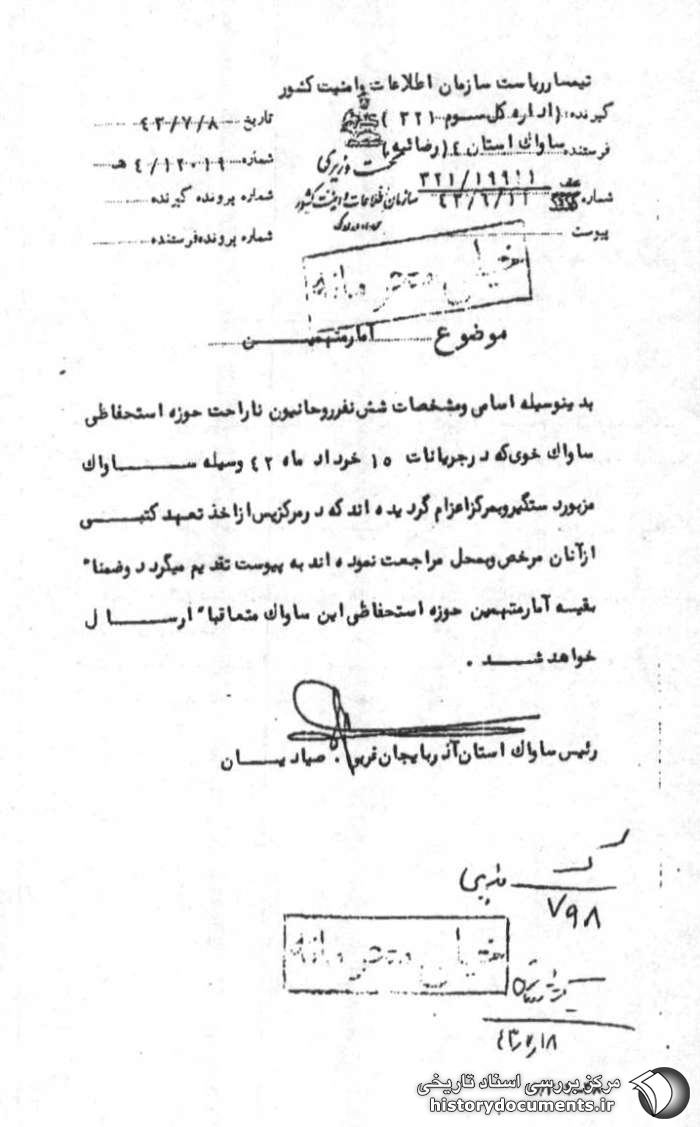 تیمسار ریاست سازمان اطلاعات وامنیت کشور
گیرنده: (اداره کل سوم ۳۲۱)
فرستنده ساواک استان ۴ (رضائیه)
نخست وزیری
سازمان اطلاعات و امنیت کشور
شماره عطف ۳۲۱/۱۹۹۱۱
۴۳/۶/۱۱
پیوست
تاریخ ۴۳/۷/۸
شماره ۴/۱۲۰۱۹ هـ
شماره پرونده گیرنده
شماره پرونده فرستنده
خیلی محرمانه
موضوع آمار متهمین
بدینوسیله اسامی ومشخصات شش نفرروحانیون ناراحت حوزه استحفاظی
ساواک خوی که درجریانات ۱۵ خرداد ماه ۴۲ وسیله ساواک
مزبورد ستگیروبمرکزاعزام گردیده اند که درمرکزپس ازاخذ تعهد کتبی
ازآنان مرخص وبمحل مراجعت نموده اند به پیوست تقدیم میگردد وضمنا"
بقیه آمارمتهمین حوزه استحفاظی این ساواک متعاقبا" ارسال
خواهد شد .
رئیس ساواک استان آذربایجان غربی . صیادیان
۷۹۸
خیلی محرمانه
۴۳/۷/۱۸
مرکز بررسی اسناد تاریخی
historydocuments.ir